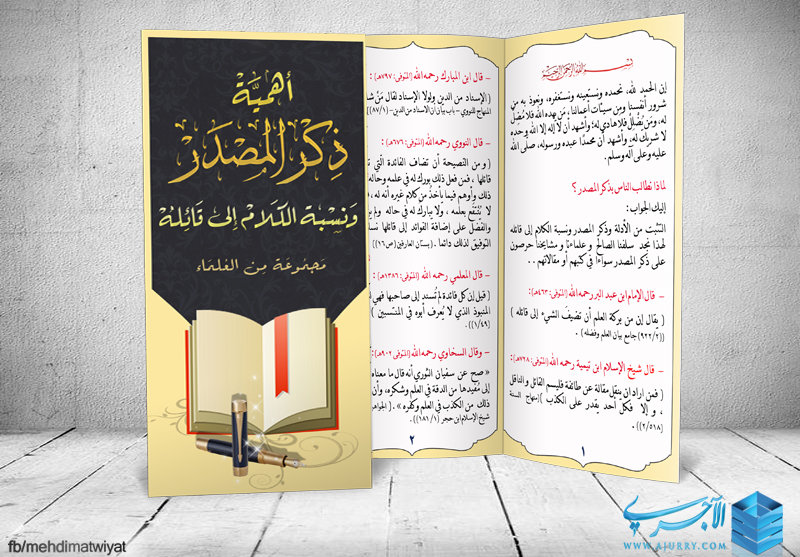 أهميَّة
ذِكْر المَصْدَر
وَنِسْبَة الكَلَامْ إِلى قَائِلهْ
مَجمُوعَة مِن العُلمَاء
بسم الله الرحمن الرحيم
إن الحمد لله، نحمده ونستعينه ونستغفره، ونعوذ به من
شرور أنفسنا ومن سيئات أعمالنا، مَن يهده الله فلا مُضِلَّ
له، ومَن يُضْلِلْ فلا هادي له؛ وأشهد أن لا إله إلا الله وحده
لا شريك له، وأشهد أن محمدًا عبده ورسوله، صلى الله
عليه وعلى آله وسلم.
لماذا نطالب الناس بذكر المصدر؟
إليك الجواب:
التثبّت من الأدلة وذكر المصدر ونسبة الكلام إلى قائله
لهذا نجد سلفنا الصالح و علماءنا و مشايخنا حرصون
على ذكر المصدر سواءًا في كتبهم أو مقالاتهم ..
– قال الإمام ابن عبد البر رحمه الله (المتوفى: ٤٦٣هـ):
( يقال إن من بركة العلم أن تضيف الشيء إلى قائله )
((٩٢٢/٢) جامع بيان العلم وفضله).
– قال شيخ الإسلام ابن تيمية رحمه الله (المتوفى: ٧٢٨هـ):
( فمن اراد ان ينقل مقالة عن طائفة فليسم القائل و الناقل
، و إلا فكلّ أحد يقدر على الكذب )(منهاج السنة
(٢/٥١٨)).
١
– قال ابن المبارك رحمه الله (المتوفى:
( الإسناد من الدين ولولا الإسناد لقال مَنْ
المنهاج للنووي – باب بيان أن الاسناد من الدين– (٨٧/١))
– قال النووي رحمه الله (المتوفى: ٦٧٦هـ):
( و من النصيحة أن تضاف الفائدة التي
قائلها ، فمن فعل ذلك بورك له في علمه وحاله
ذلك وأوهم فيما يأخذ من كلام غيره أنه له
لا يُنْتَفَع بعلمه ، ولا يبارك له في حاله ولم
والفضل على إضافة الفوائد إلى قائلها
التوفيق لذلك دائما .(بستان العارفين (ص١٦)
– قال المعلمي رحمه الله (المتوفى: ١٣٨٦هـ):
( قيل إن كل فائدة لم تُسند إلى صاحبها فهي
المنبوذ الذي لا يُعرف أبوه في المنتسبين )
(١/٤٩)).
– وقال السخاوي رحمه الله (المتوفى: ٩٠٢هـ
« صح عن سفيان الثوري أنه قال ما معناه
إلى مُفيدها من الدقة في العلم وشكره، وأن
ذلك من الكذب في العلم وكفره » . (الجواهر
شيخ الإسلام ابن حجر (١/ ١٨١)).
٢
fb/mehdimatwiyat
الآجري
WWW.AJURRY.COM